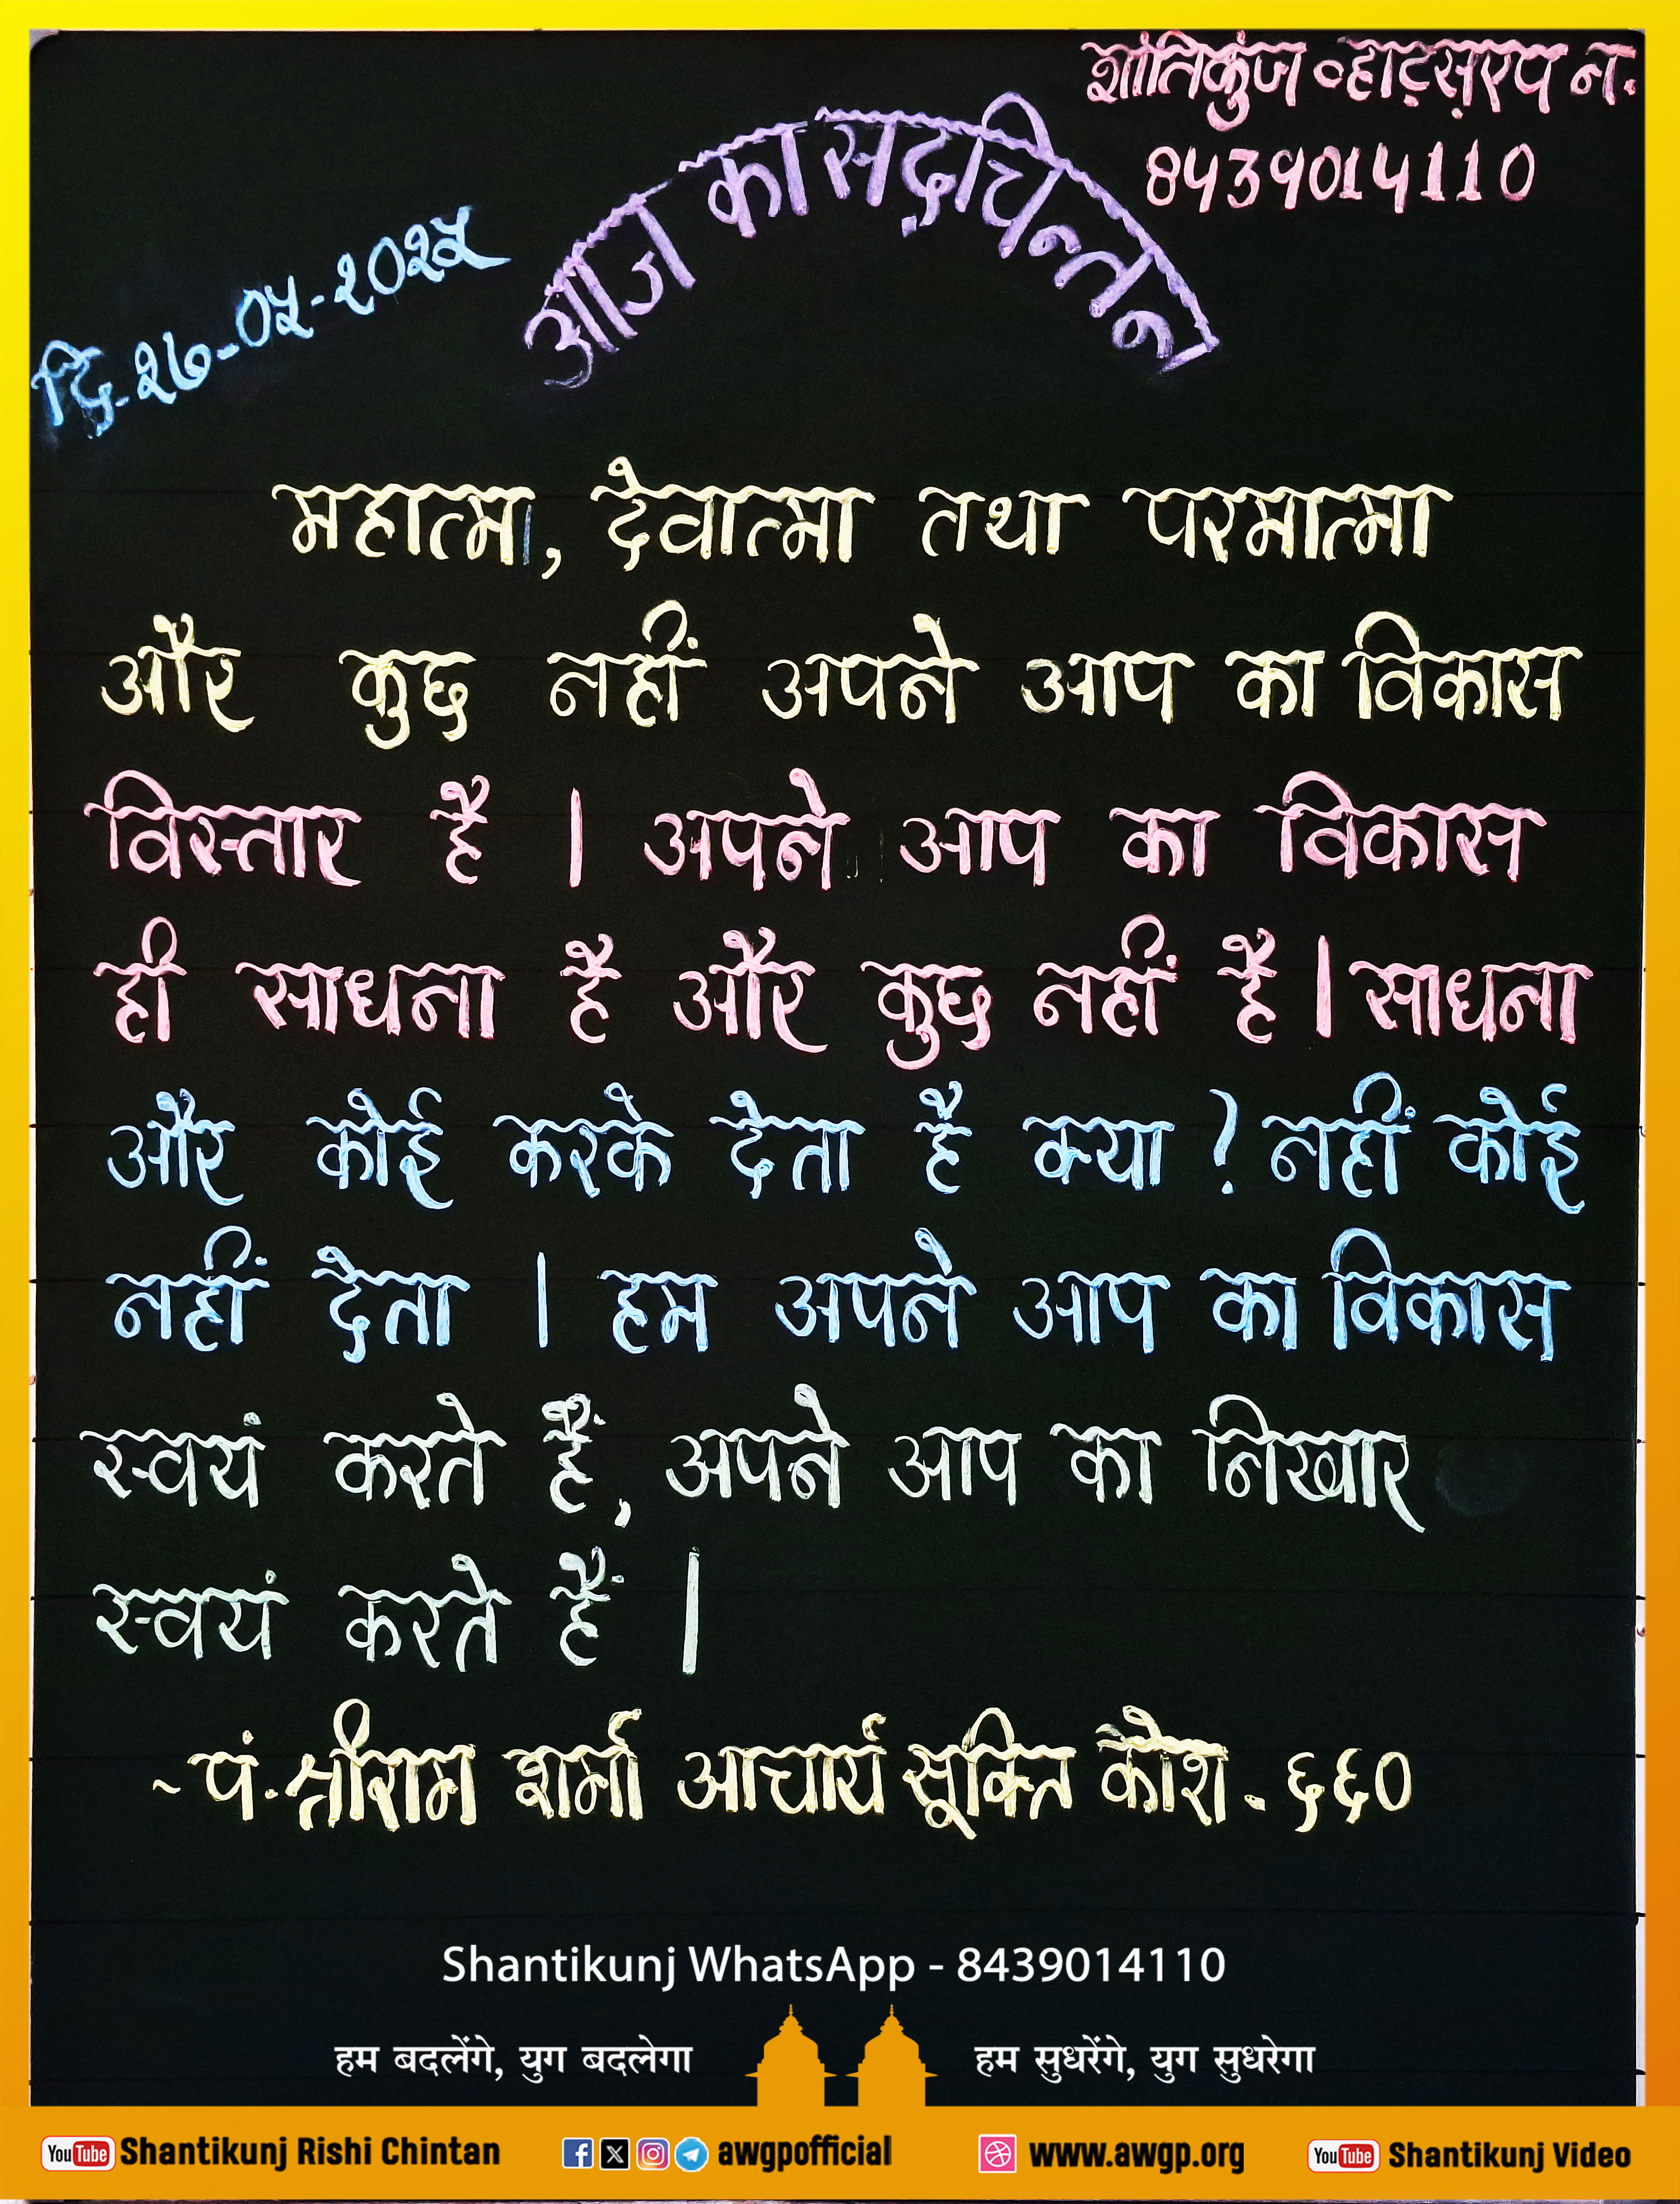 शांतिकुंज व्हाट्सएप न.
8439014110
आज का सद्चिन्तन
दि.-२७-०५-२०२५
महात्मा, देवात्मा तथा परमात्मा
और कुछ नहीं अपने आप का विकास
विस्तार है । अपने आप का विकास
ही साधना है और कुछ नहीं है । साधना
और कोई करके देता है क्या ? नहीं कोई
नहीं देता । हम अपने आप का विकास
स्वयं करते हैं, अपने आप का निखार
स्वयं करते हैं ।
~ पं. श्रीराम शर्मा आचार्य सूक्ति कोश - ६६०
Shantikunj WhatsApp - 8439014110
हम बदलेंगे, युग बदलेगा हम सुधरेंगे, युग सुधरेगा
YouTube Shantikunj Rishi Chintan awgpofficial www.awgp.org YouTube Shantikunj Video